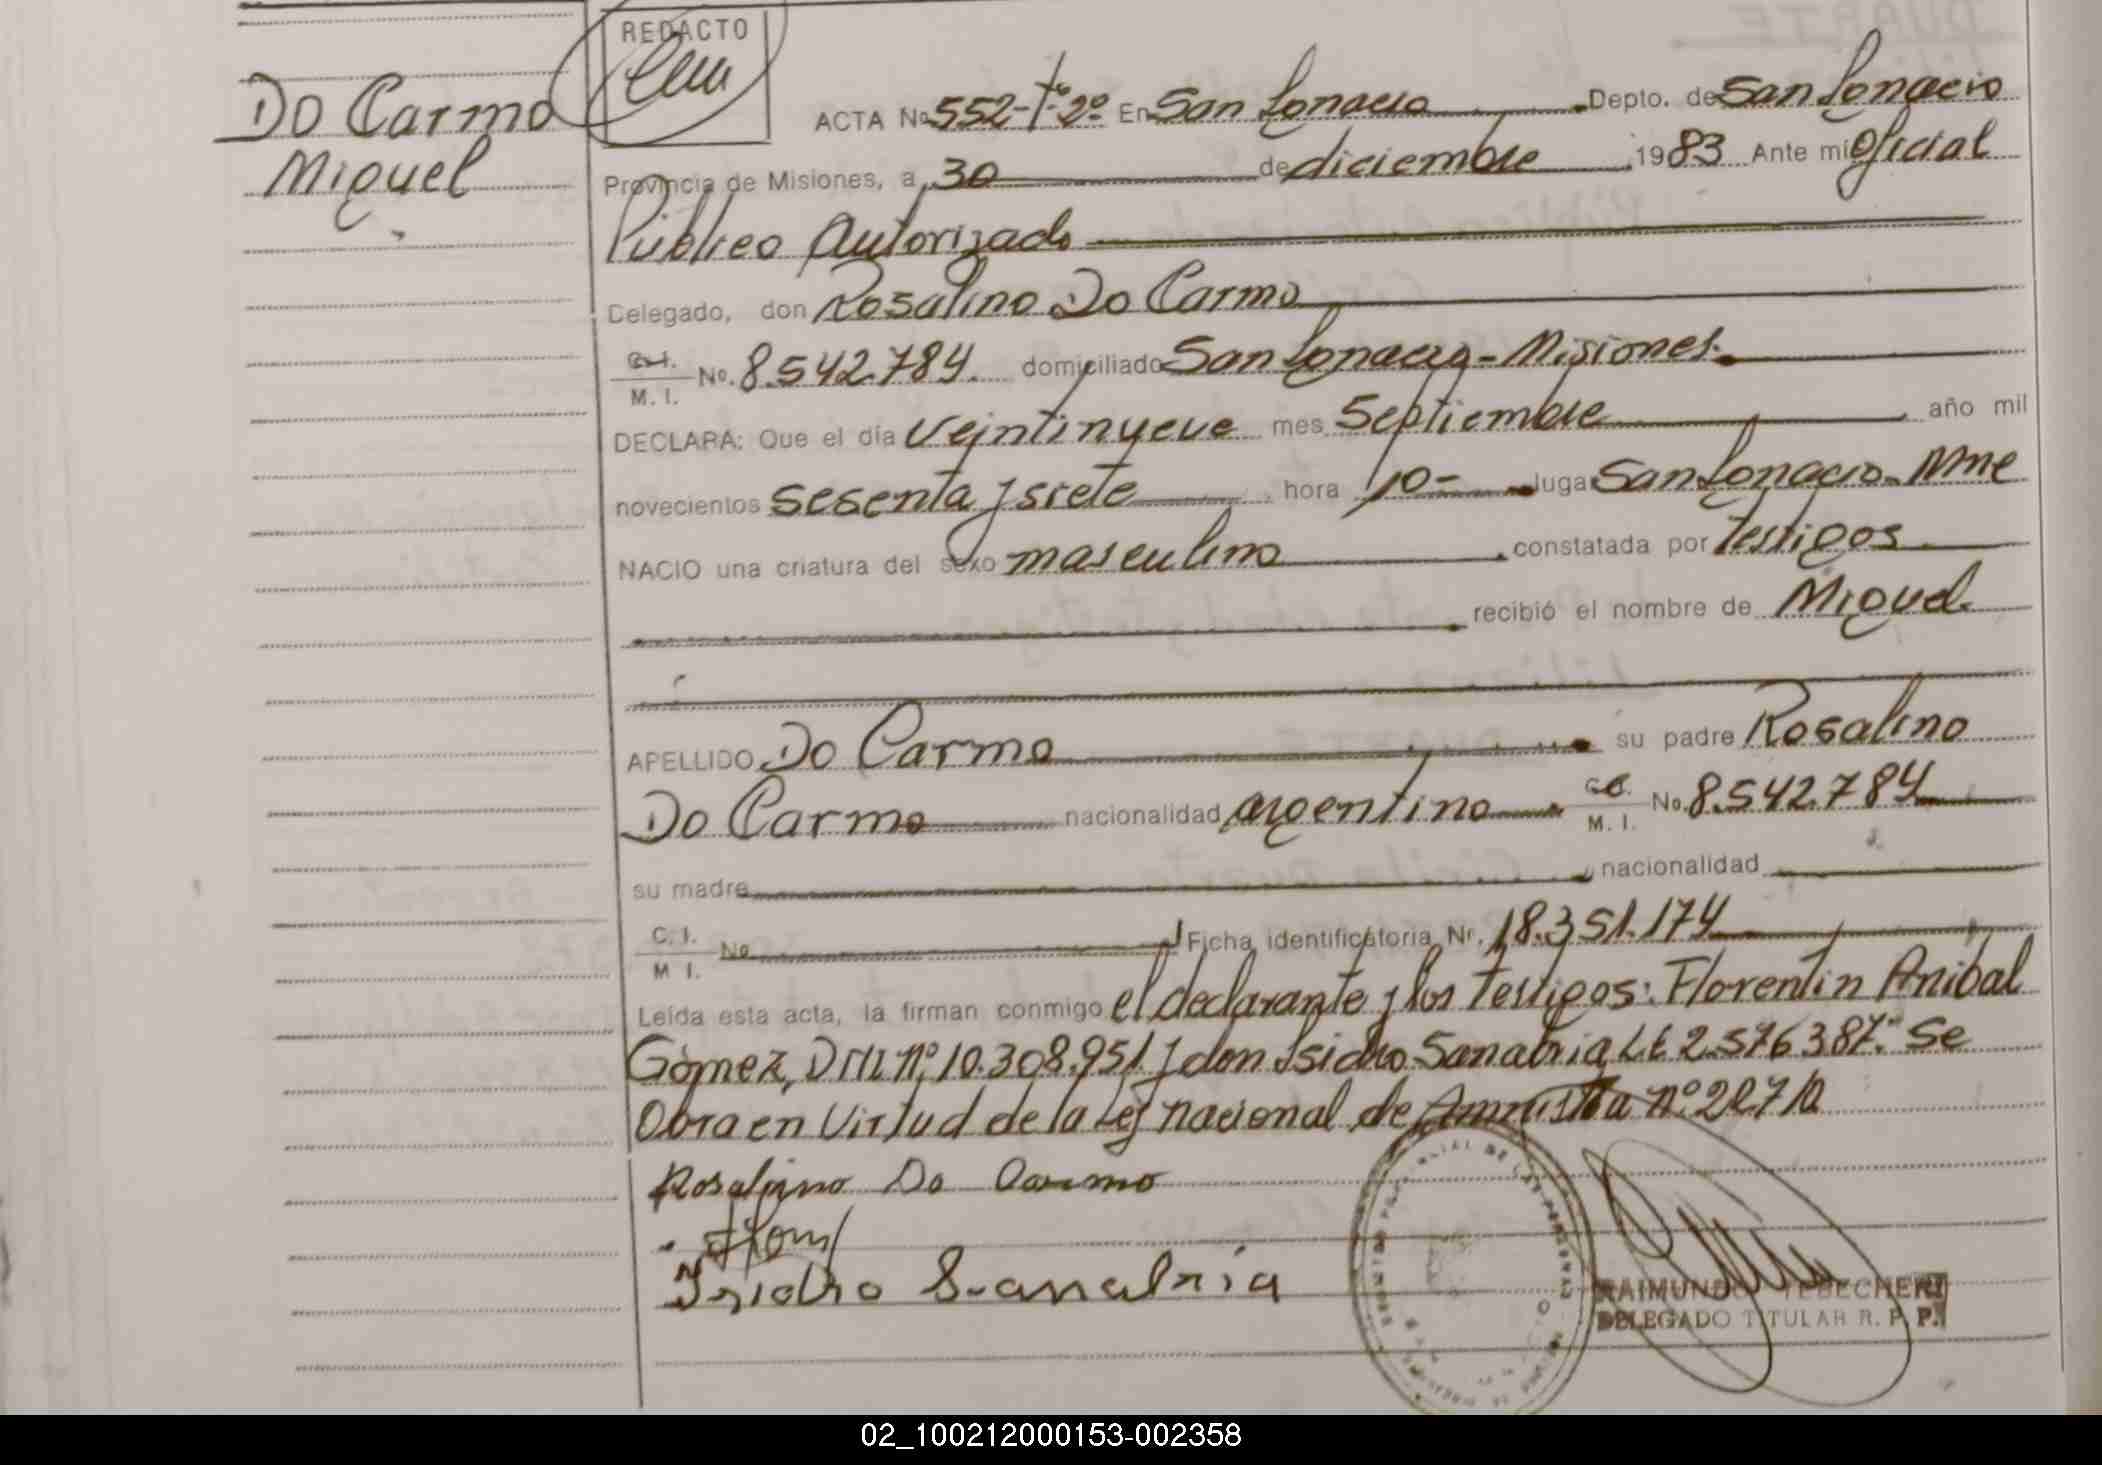 Do Carmo
Miguel
REDACTO
ACTA No 552-Tº 2º En San Ignacio Depto. de San Ignacio
Provincia de Misiones, a 30 de diciembre 1983 Ante mi Oficial
Público Autorizado
Delegado, don Rosalino Do Carmo
C.I. M.I. No. 8.542.784. domiciliado San Ignacio - Misiones.
DECLARA: Que el día veintinueve mes Septiembre año mil
novecientos sesenta y siete hora 10- lugar San Ignacio - Mnes
NACIO una criatura del sexo masculino constatada por testigos
recibió el nombre de Miguel.
APELLIDO Do Carmo su padre Rosalino
Do Carmo nacionalidad argentino C.I. M.I. No. 8.542.784
su madre nacionalidad
C.I. M I. No Ficha identificatoria Nr. 18.351.174
Leída esta acta, la firman conmigo el declarante y los testigos: Florentin Anibal
Gómez, DNI nº 10.308.951 y don Isidro Sanabria LE 2.576.387.- Se
Obra en Virtud de la Ley nacional de Amnistia nº
Rosalino Do Carmo
Isidro Sanabria
RAIMUNDO TEBECHERI
DELEGADO TITULAR R. P. P.
02_100212000153-002358